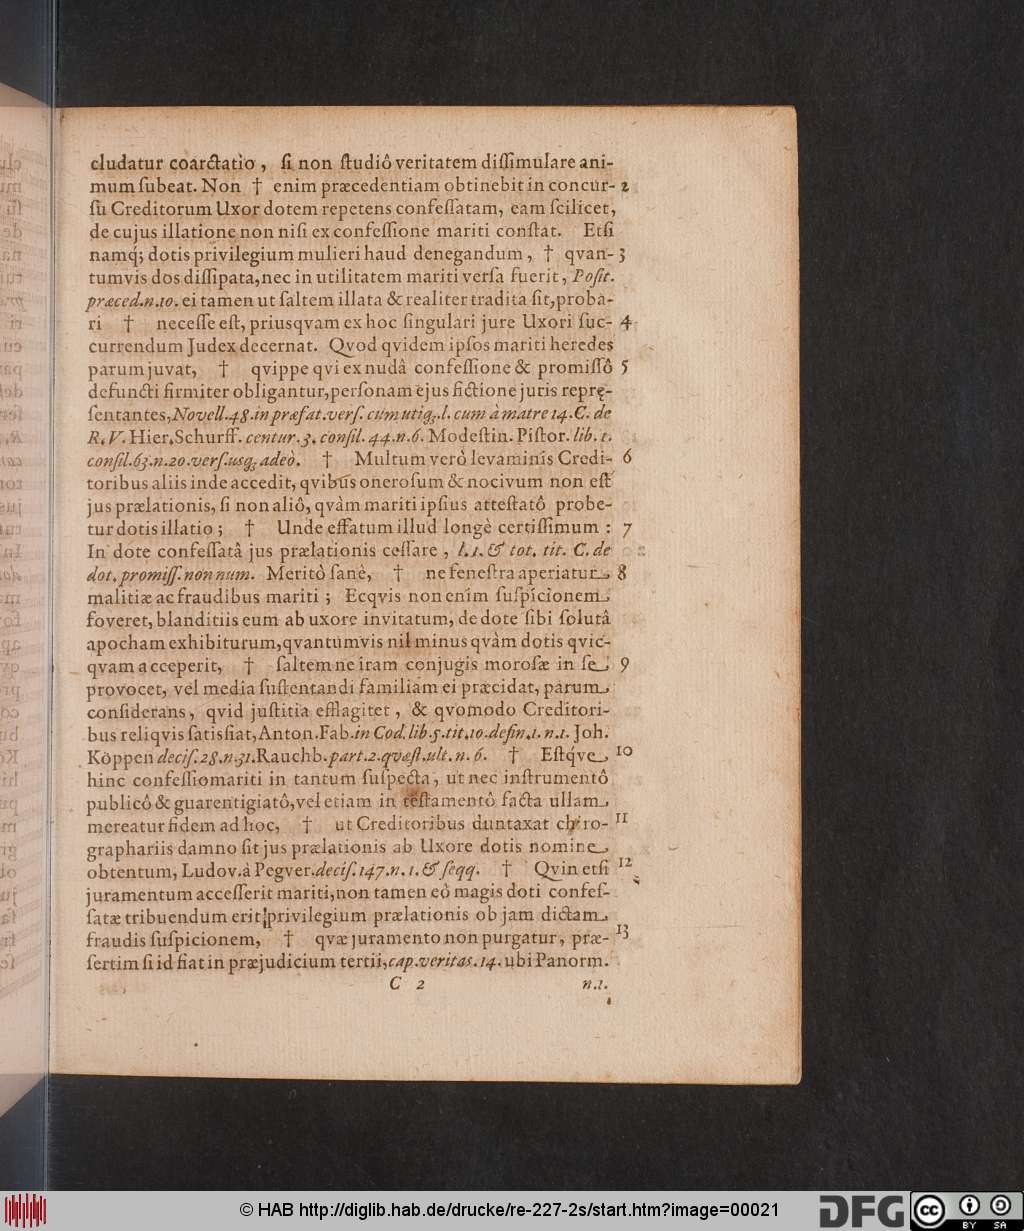 cludatur coarctatio, ſi non ſtudiô veritatem diſſimulare ani-
mum ſubeat. Non † enim præcedentiam obtinebit in concur- 2
ſu Creditorum Uxor dotem repetens confeſſatam, eam ſcilicet,
de cujus illatione non niſi ex confeſſione mariti conſtat. Etſi
namq́; dotis privilegium mulieri haud denegandum, † qvan- 3
tumvis dos diſſipata, nec in utilitatem mariti verſa fuerit, Poſit.
præced. n. 10. ei tamen ut ſaltem illata & realiter tradita ſit, proba-
ri † neceſſe eſt, priusqvam ex hoc ſingulari jure Uxori ſuc- 4
currendum Judex decernat. Qvod qvidem ipſos mariti heredes
parum juvat, † qvippe qvi ex nudâ confeſſione & promiſſô 5
defuncti firmiter obligantur, perſonam ejus fictione juris reprę-
ſentantes, Novell. 48. in præfat. verſ. cum utiq; l. cum à matre 14. C. de
R. V. Hier. Schurff. centur. 3. conſil. 44. n. 6. Modeſtin. Piſtor. lib. 1.
conſil. 63. n. 20. verſ. usq; adeò. † Multum verò levaminis Credi- 6
toribus aliis inde accedit, qvibus oneroſum & nocivum non eſt
jus prælationis, ſi non aliô, qvàm mariti ipſius atteſtatô probe-
tur dotis illatio; † Unde effatum illud longè certiſſimum: 7
In dote confeſſatâ jus prælationis ceſſare, l. 1. & tot. tit. C. de
dot. promiſſ. non num. Meritò ſanè, † ne feneſtra aperiatur 8
malitiæ ac fraudibus mariti; Ecqvis non enim ſuſpicionem
foveret, blanditiis eum ab uxore invitatum, de dote ſibi ſolutâ
apocham exhibiturum, qvantumvis nil minus qvàm dotis qvic-
qvam acceperit, † ſaltem ne iram conjugis moroſæ in ſe 9
provocet, vel media ſuſtentandi familiam ei præcidat, parum
conſiderans, qvid juſtitia efflagitet, & qvomodo Creditori-
bus reliqvis ſatisfiat, Anton. Fab. in Cod. lib. 5. tit. 10. defin. 1. n. 1. Joh.
Köppen deciſ. 28. n. 31. Rauchb. part. 2. qvæſt. ult. n. 6. † Eſtq́ve 10
hinc confeſſio mariti in tantum ſuſpecta, ut nec inſtrumentô
publicô & guarentigiatô, vel etiam in teſtamentô facta ullam
mereatur fidem ad hoc, † ut Creditoribus duntaxat chiro- 11
graphariis damno ſit jus prælationis ab Uxore dotis nomine
obtentum, Ludov. à Pegver. deciſ. 147. n. 1. & ſeqq. † Qvin etſi 12
juramentum acceſſerit mariti, non tamen eô magis doti confeſ-
ſatæ tribuendum erit privilegium prælationis ob jam dictam
fraudis ſuſpicionem, † qvæ juramento non purgatur, præ- 13
ſertim ſi id fiat in præjudicium tertii, cap. veritas. 14. ubi Panorm.
C 2 n. 1.
© HAB http://diglib.hab.de/drucke/re-227-2s/start.htm?image=00021
DFG cc BY SA